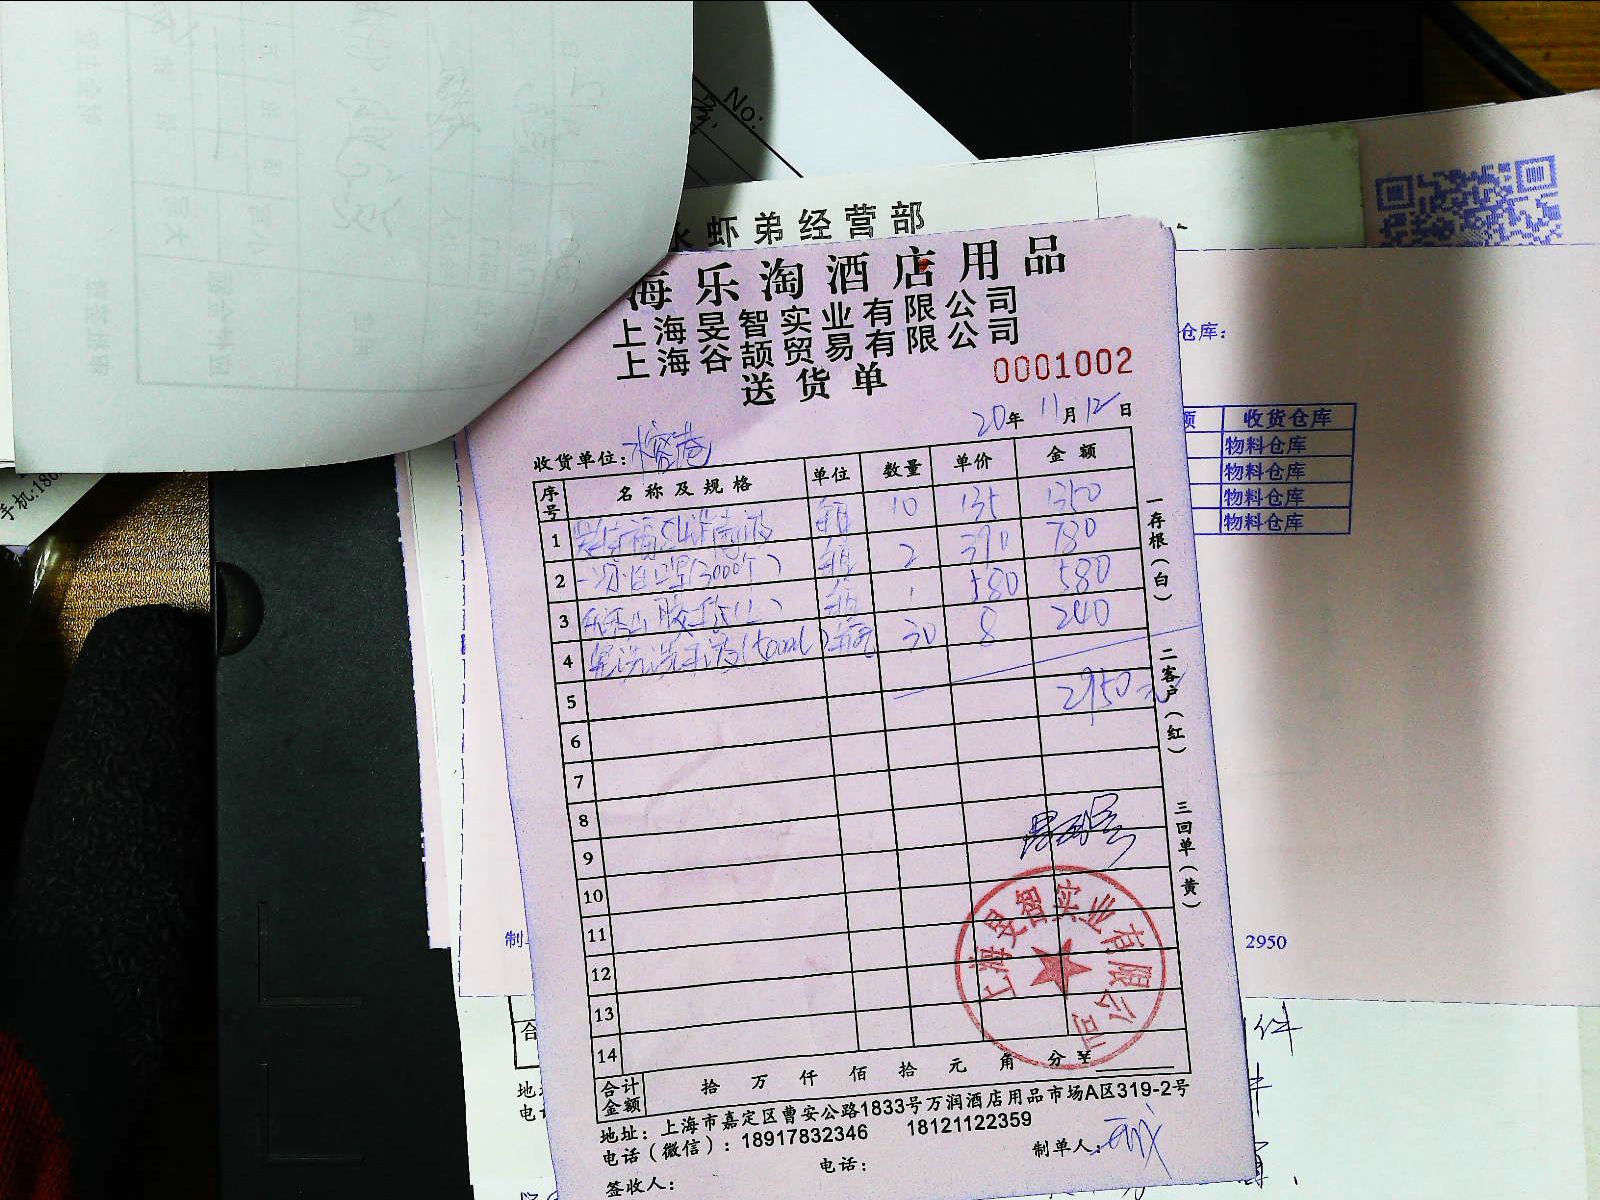 No:
手机:180
虾弟经营部
海乐淘酒店用品
上海旻智实业有限公司
上海谷颉贸易有限公司
送货单
0001002
20年11月12日
收货单位:
序号 名称及规格 单位 数量 单价 金额
1 箱 10 135 1350
2 一次性口罩(3000个) 箱 2 390 780
3 箱 1 580 580
4 洗手液 30 8 240
5 2950元
6
7
8
9
10
11
12
13
14
合计金额 拾 万 仟 佰 拾 元 角 分 ¥
地址:上海市嘉定区曹安公路1833号万润酒店用品市场A区319-2号
电话(微信):18917832346 18121122359
电话: 制单人:
签收人:
一存根(白)
二客户(红)
三回单(黄)
上海旻智实业有限公司
仓库:
额 收货仓库
物料仓库
物料仓库
物料仓库
物料仓库
制
2950
合
件